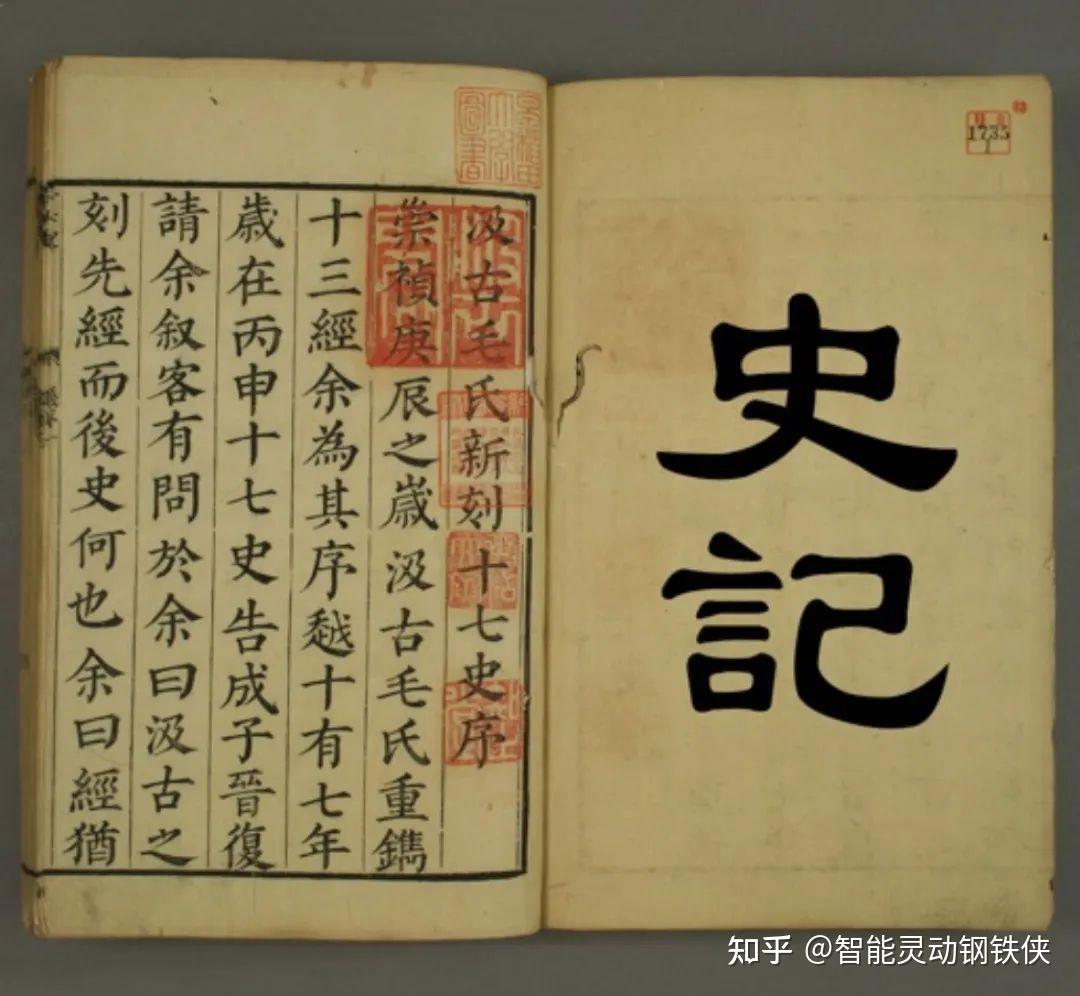 史記
汲古毛氏新刻十七史序
崇禎庚辰之歲汲古毛氏重鐫
十三經余為其序越十有七年
歲在丙申十七史告成子晉復
請余叙客有問於余曰汲古之
刻先經而後史何也余曰經猶
1735
1
知乎 @智能灵动钢铁侠